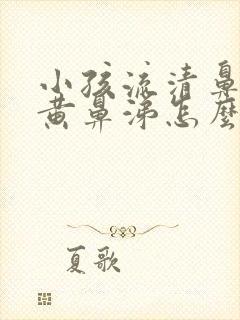 小孩流清鼻
黄鼻涕怎麼
夏歌